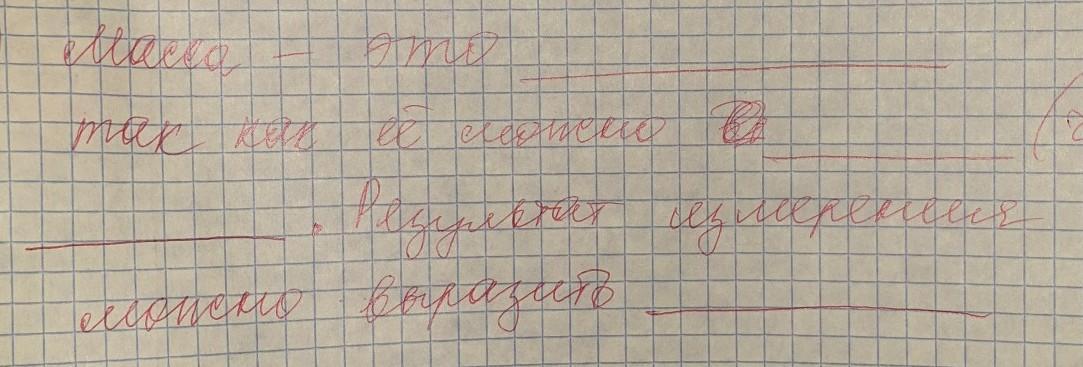 Масса – это ____________
так как её можно ________ (
________. Результат измерения
можно выразить ____________